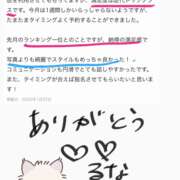 です。今月は1週間しかいらっしゃらないようですが、
たまたまタイミングよく予約することができました。
先月のランキング一位とのことですが、納得の満足度で
す。
写真よりも綺麗でスタイルもめっちゃ良かった！
コミュニケーションも円滑でとても話しやすかったです。
また、タイミングが合えば指名させてもらいたいと思いま
す！
ありがとう
るな